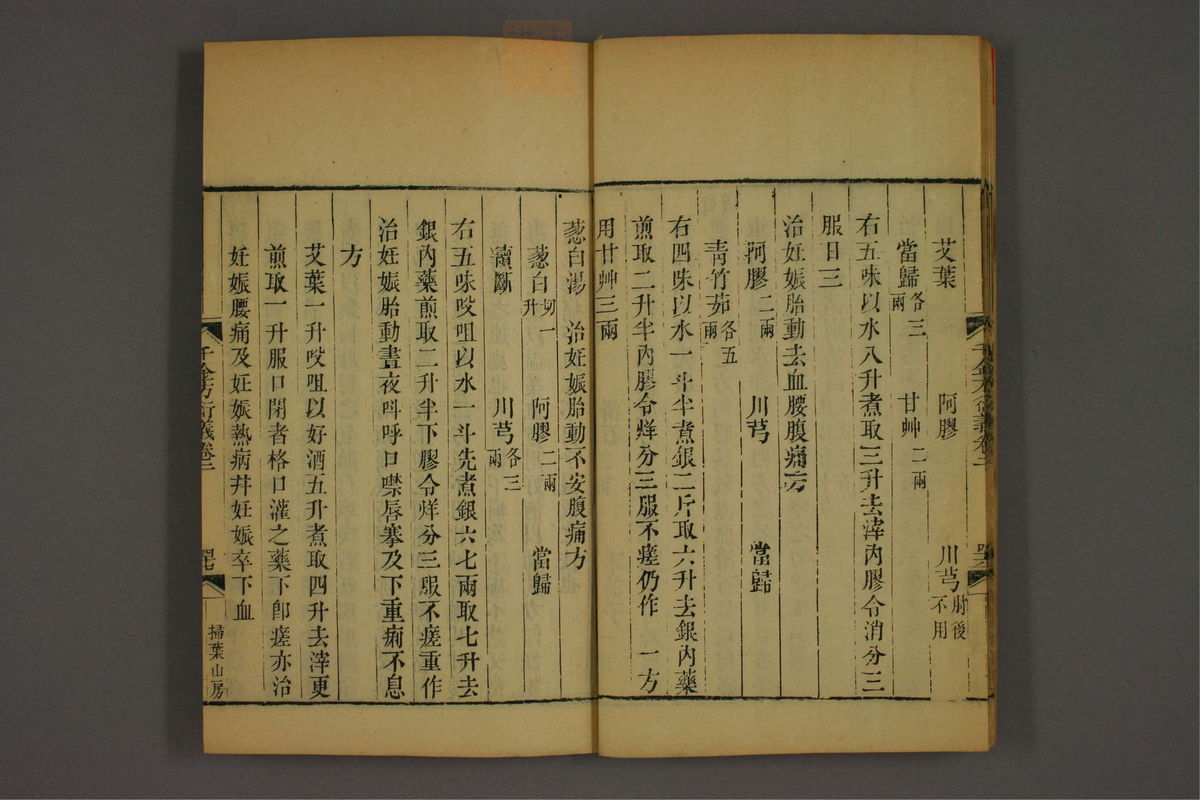 艾葉 阿膠 川芎肘後不用
當歸各三兩 甘艸二兩
右五味以水八升煮取三升去滓內膠令消分三
服日三
治妊娠胎動去血腰腹痛方
阿膠二兩 川芎 當歸
青竹茹各五兩
右四味以水一斗半煮銀二斤取六升去銀內藥
煎取二升半內膠令烊分三服不瘥仍作 一方
用甘艸三兩
蔥白湯 治妊娠胎動不安腹痛方
蔥白切一升 阿膠二兩 當歸
續斷 川芎各三兩
右五味㕮咀以水一斗先煮銀六七兩取七升去
銀內藥煎取二升半下膠令烊分三服不瘥重作
治妊娠胎動晝夜呌呼口噤唇搴及下重痢不息
方
艾葉一升㕮咀以好酒五升煮取四升去滓更
煎取一升服口閉者格口灌之藥下卽瘥亦治
妊娠腰痛及妊娠熱病幷妊娠卒下血
千金方衍義卷三
掃葉山房